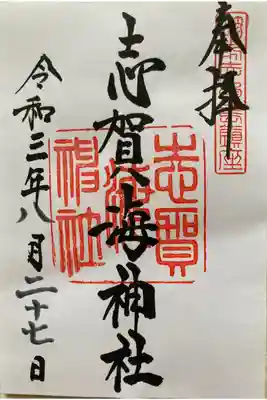 奉拝
志賀海神社
志賀海神社
令和三年八月二十七日